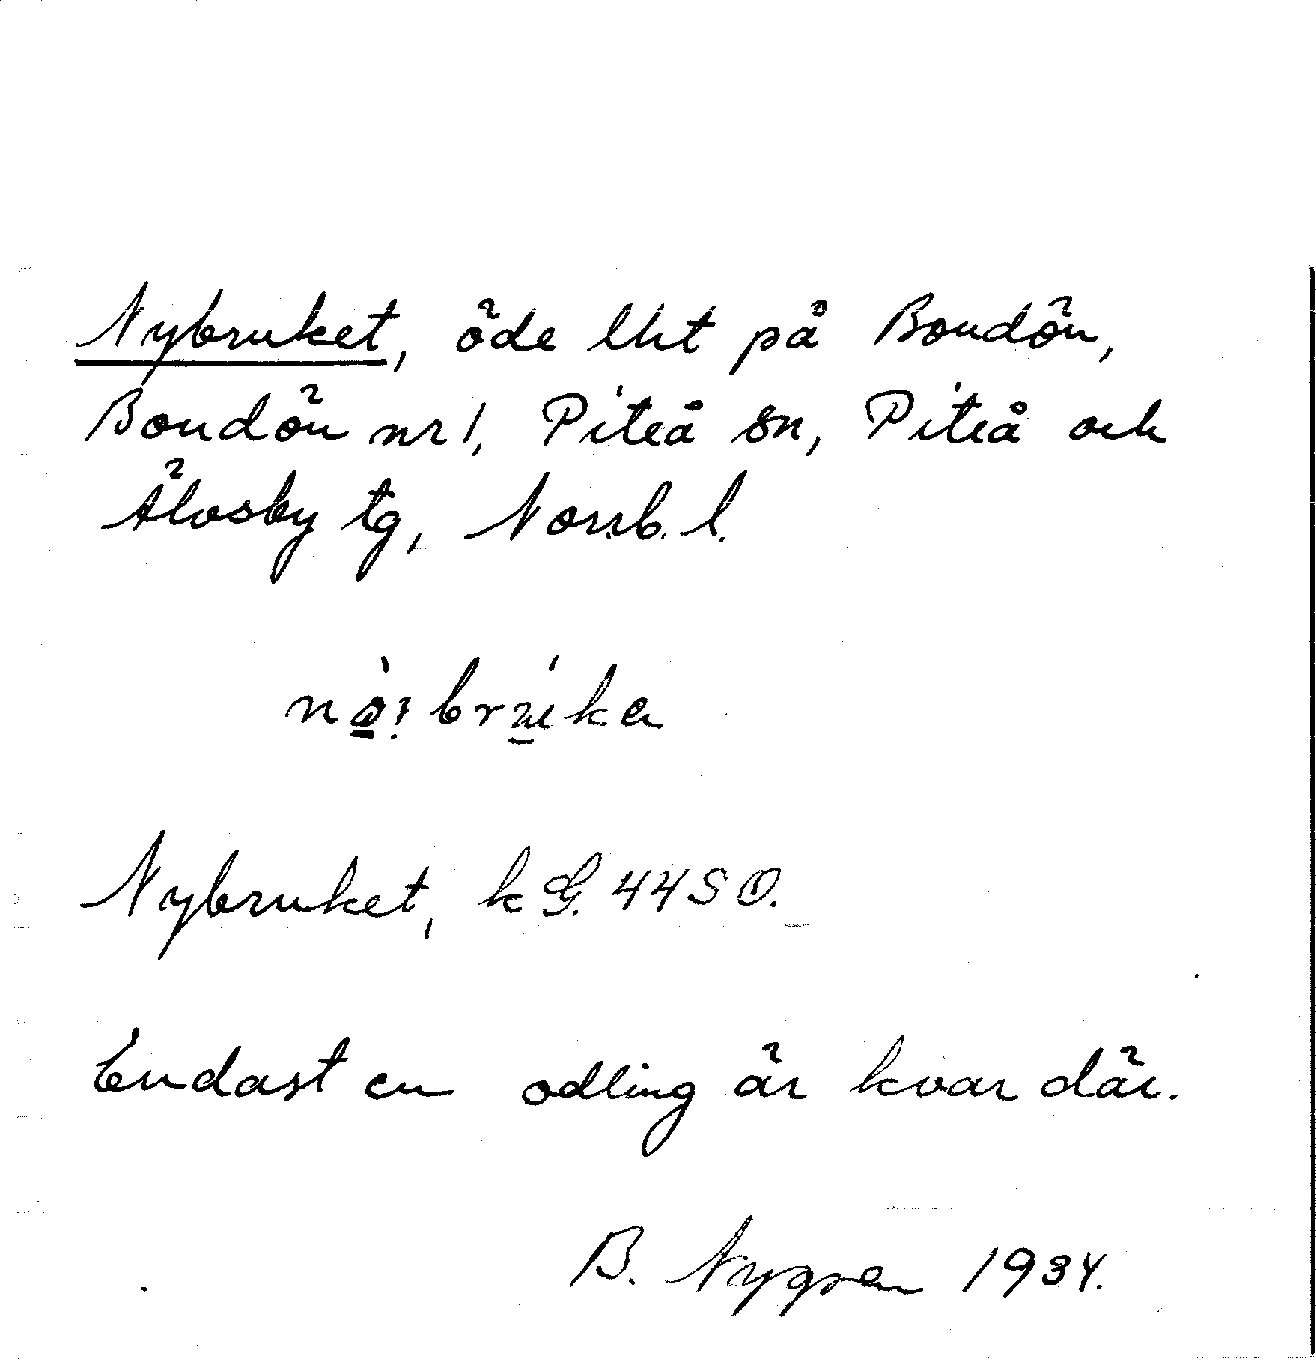 Nybruket, öde lht på Bondön,
Bondön nr 1, Piteå sn, Piteå och
Älvsby tg, Norrb. l.
Nybruket, k G. 44 S O.
Endast en odling är kvar där.
B. Nygren 1934.